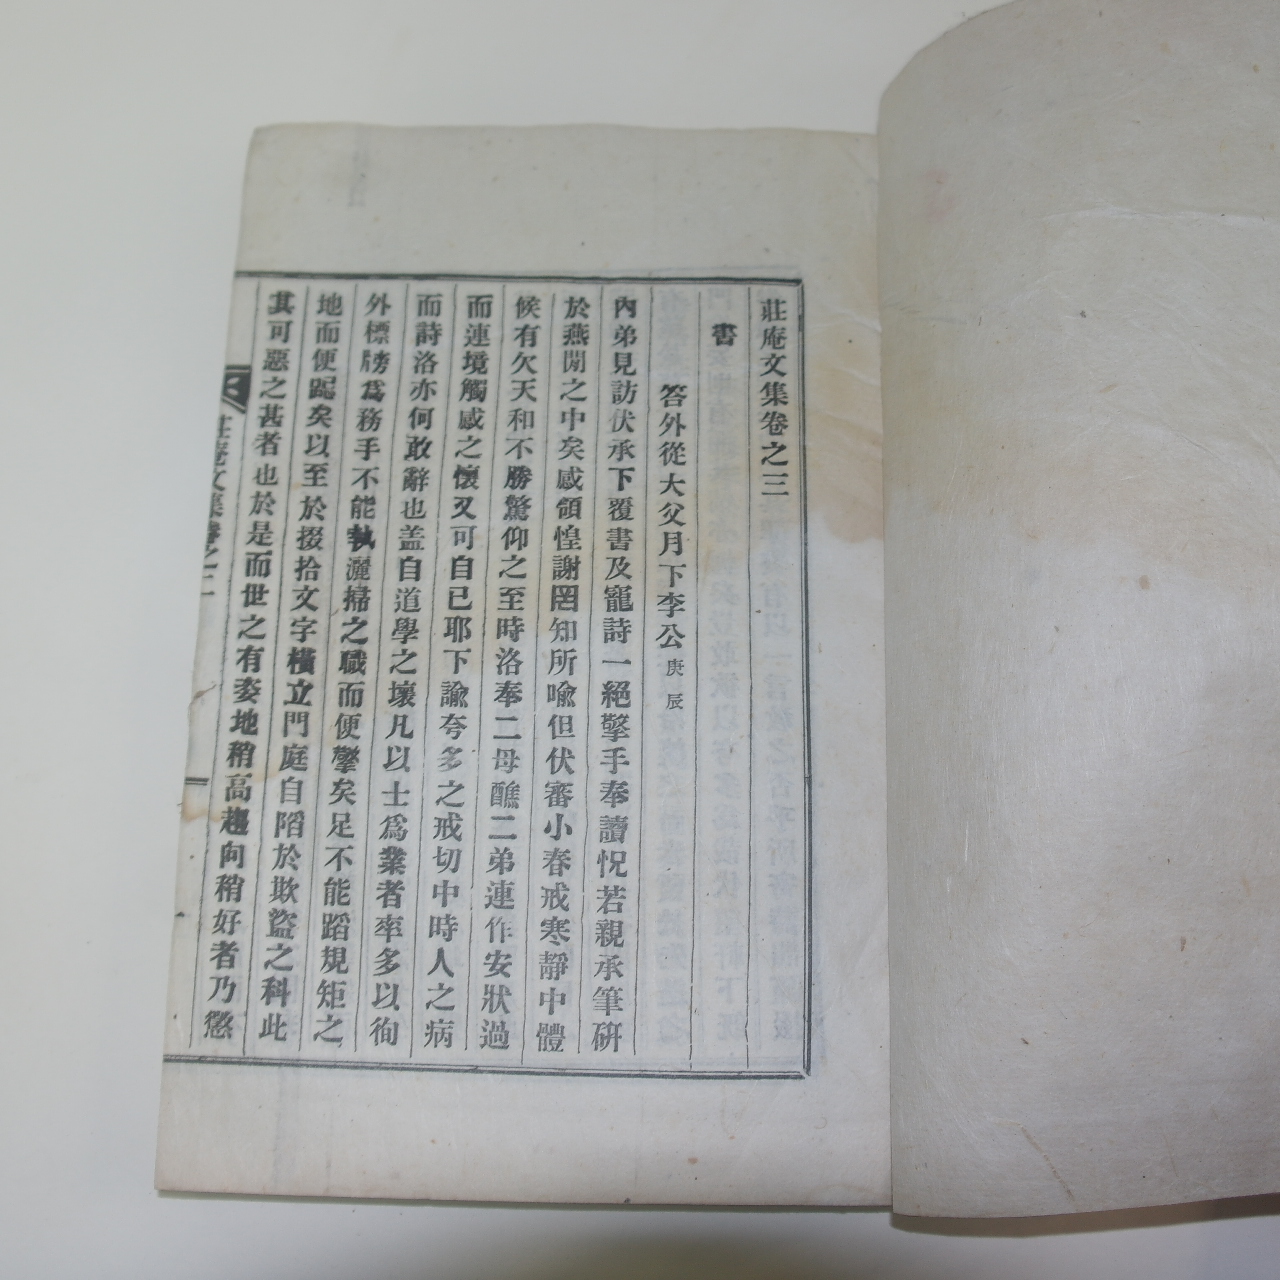 莊庵文集卷之三
書
答外從大父月下李公庚辰
內弟見訪伏承下覆書及寵詩一絕擎手奉讀怳若親承筆硏
於燕閒之中矣感領惶謝罔知所喩但伏審小春戒寒靜中體
候有欠天和不勝驚仰之至時洛奉二母醮二弟連作安狀過
而連境觸感之懷又可自已耶下諭夸多之戒切中時人之病
而詩洛亦何敢辭也盖自道學之壞凡以士爲業者率多以徇
外標牓爲務手不能執灑掃之職而便攣矣足不能蹈規矩之
地而便跽矣以至於掇拾文字橫立門庭自陷於欺盜之科此
其可惡之甚者也於是而世之有姿地稍高趨向稍好者乃懲
莊庵文集卷之三